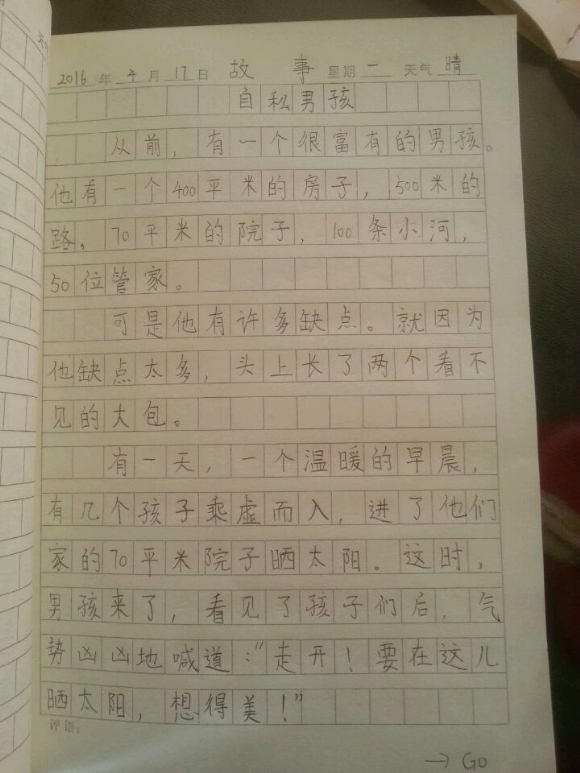 2016年4月17日 故事 星期一 天气晴
自私男孩
从前，有一个很富有的男孩。
他有一个400平米的房子，500米的
路。70平米的院子，100条小河，
50位管家。
可是他有许多缺点。就因为
他缺点太多，头上长了两个看不
见的大包。
有一天，一个温暖的早晨，
有几个孩子乘虚而入，进了他们
家的70平米院子晒太阳。这时，
男孩来了，看见了孩子们后，气
势凶凶地喊道："走开！要在这儿
晒太阳，想得美！"
评语：
→ Go